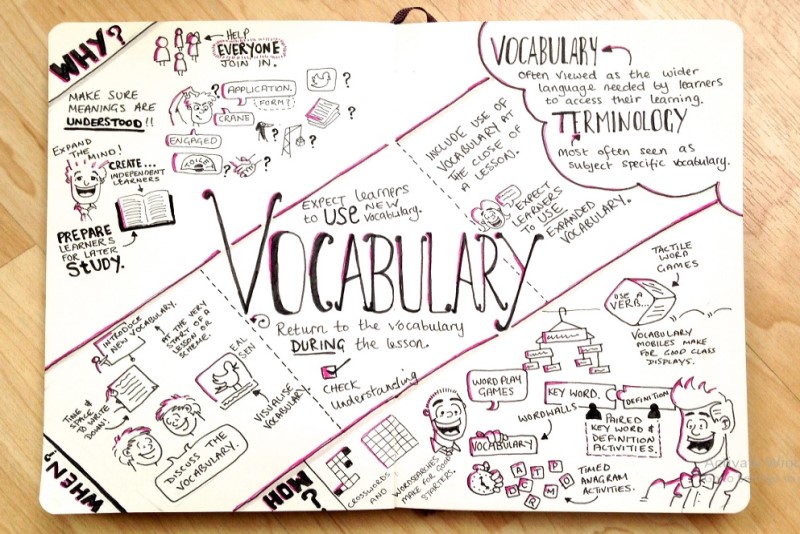 WHY?
HELP
EVERYONE
JOIN IN.
MAKE SURE
MEANINGS ARE
UNDERSTOOD!!
APPLICATION.
FORM?
CRANE
ENGAGED
TOILET
?
?
?
?
?
?
EXPAND
THE MIND!
CREATE...
INDEPENDENT
LEARNERS
PREPARE
LEARNERS
FOR LATER
STUDY.
VOCABULARY
Often viewed as the wider
language needed by learners
to access their learning.
TERMINOLOGY
Most often seen as
subject specific vocabulary.
INCLUDE USE OF
VOCABULARY AT
THE CLOSE OF
A LESSON.
EXPECT
LEARNERS
TO USE
EXPANDED
VOCABULARY.
EXPECT learners
to USE NEW
vocabulary.
VOCABULARY
Return to the vocabulary
DURING the lesson.
CHECK
Understanding
WHEN?
INTRODUCE
NEW VOCABULARY.
AT THE VERY
START OF A
LESSON OR
SCHEME.
TIME &
SPACE
TO WRITE
DOWN!
EAL
SEN
VISUALISE
VOCABULARY
DISCUSS THE
VOCABULARY.
HOW?
CROSSWORDS
AND
WORDSEARCHES
MAKE FOR GOOD
STARTERS.
WORD PLAY
GAMES
WORDWALLS
VOCABULARY
TACTILE
WORD
GAMES
USE A
VERB...
VOCABULARY
MOBILES MAKE
FOR GOOD CLASS
DISPLAYS.
KEY WORD.
DEFINITION
PAIRED
KEY WORD &
DEFINITION
ACTIVITIES.
A T P
D C R M O
TIMED
ANAGRAM
ACTIVITIES.